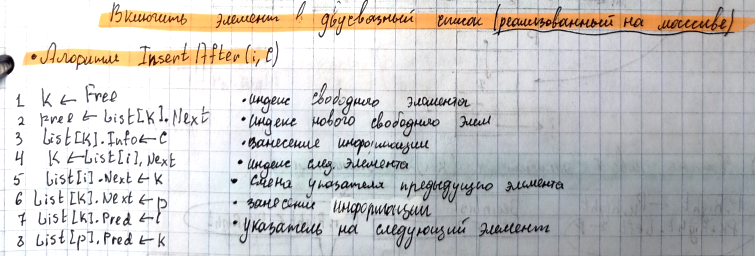 Включить элемент в двусвязный список (реализованный на массиве)
• Алгоритм InsertAfter(i, C)
1 K ← Free • индекс свободного элемента
2 Free ← List[K].Next • индекс нового свободного элем
3 List[K].Info ← C • занесение информации
4 K ← List[i], Next • индекс след. элемента
5 List[i].Next ← K • смена указателя предыдущего элемента
6 List[K].Next ← p • занесение информации
7 List[K].Pred ← i • указатель на следующий элемент
8 List[p].Pred ← K